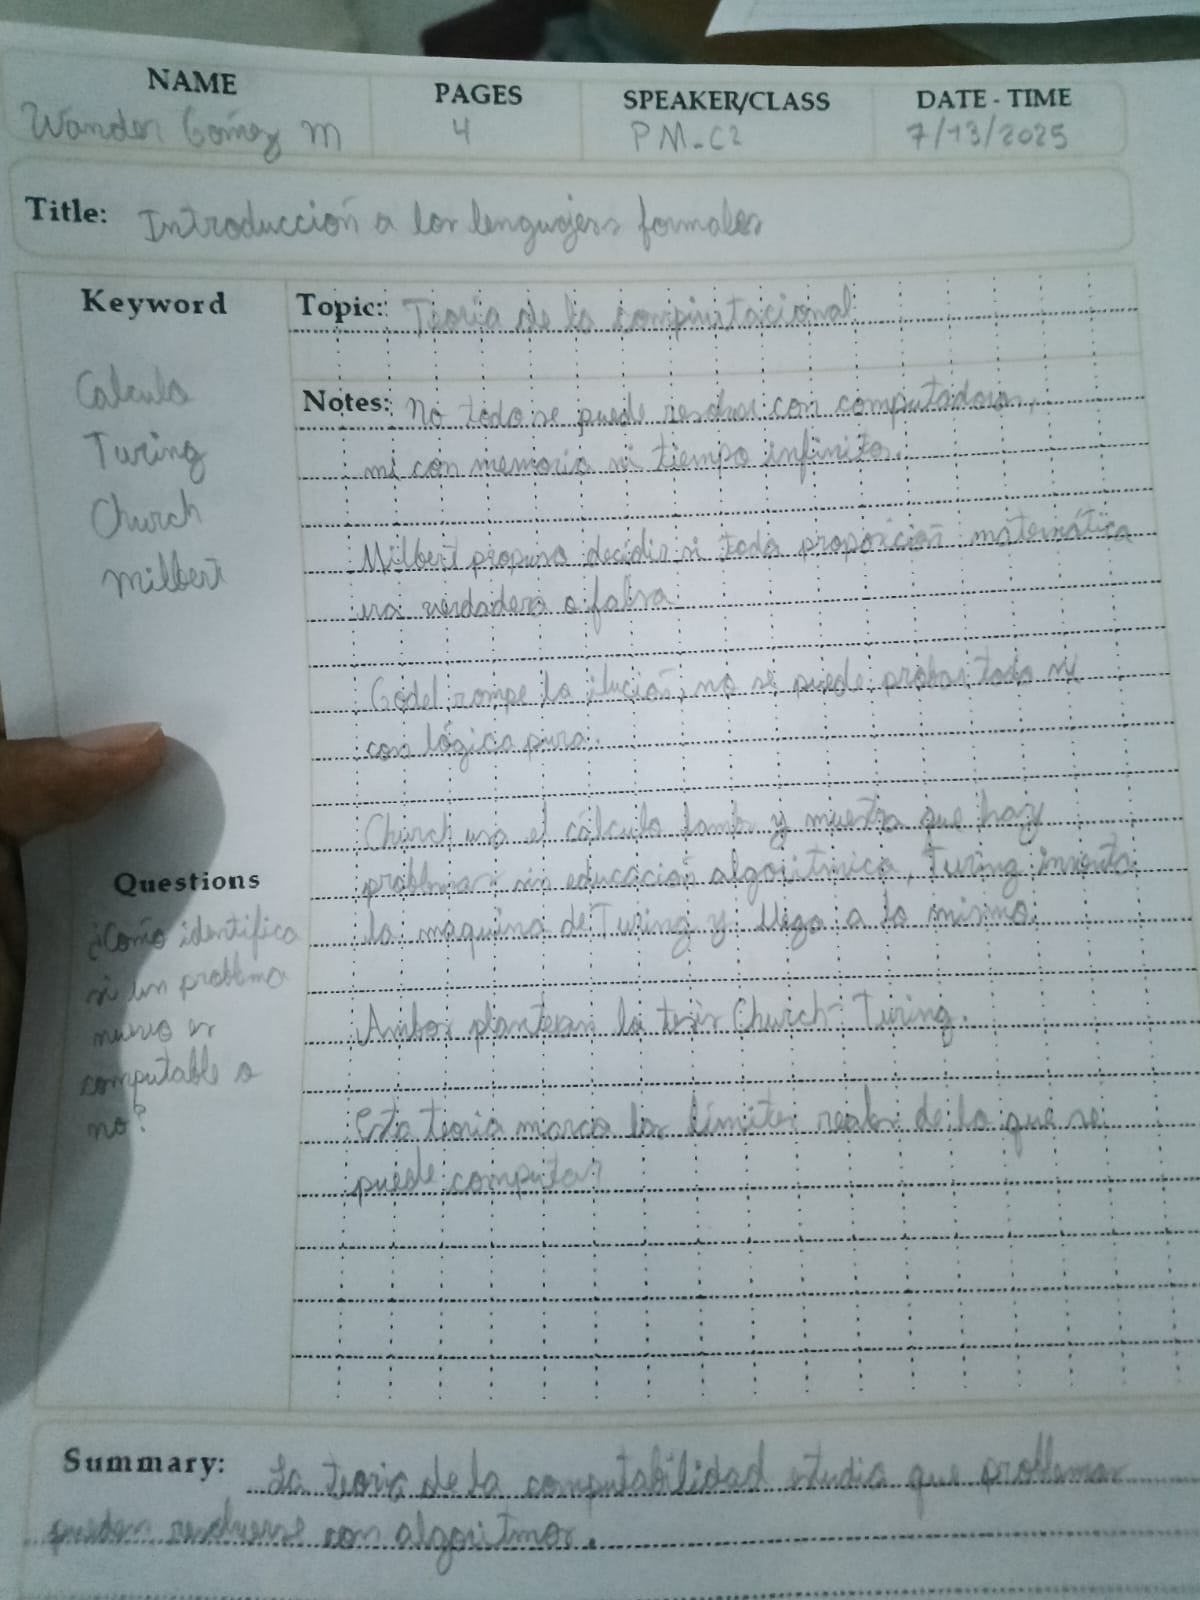 NAME PAGES SPEAKER/CLASS DATE - TIME
Wander Gómez M 4 PM-C2 7/13/2025
Title: Introducción a los lenguajess formales
Keyword
Calculo
Turing
Church
Milbert
Topic: Teoría de la computacional
Notes: No todo se puede resolver con computadoras,
mi con memoria ni tiempo infinito.
Milbert propuso decidir si toda proposición matemática
era verdadera o falsa
Godel rompe la ilución, no se puede probar todo ni
con lógica pura.
Church usa el cálculo lamb y muestra que hay
problemas sin educación algorítmica, Turing inventa
la maquina de Turing y llego a lo mismo.
Ambos plantean la tesis Church-Turing.
Esta teoria marca los límites reales de lo que se
puede computar
Questions
¿Como identifica
si un problema
nuevo es
computable o
no?
Summary: La teoria de la computabilidad estudia que problemas
pueden resolverse con algoritmos.